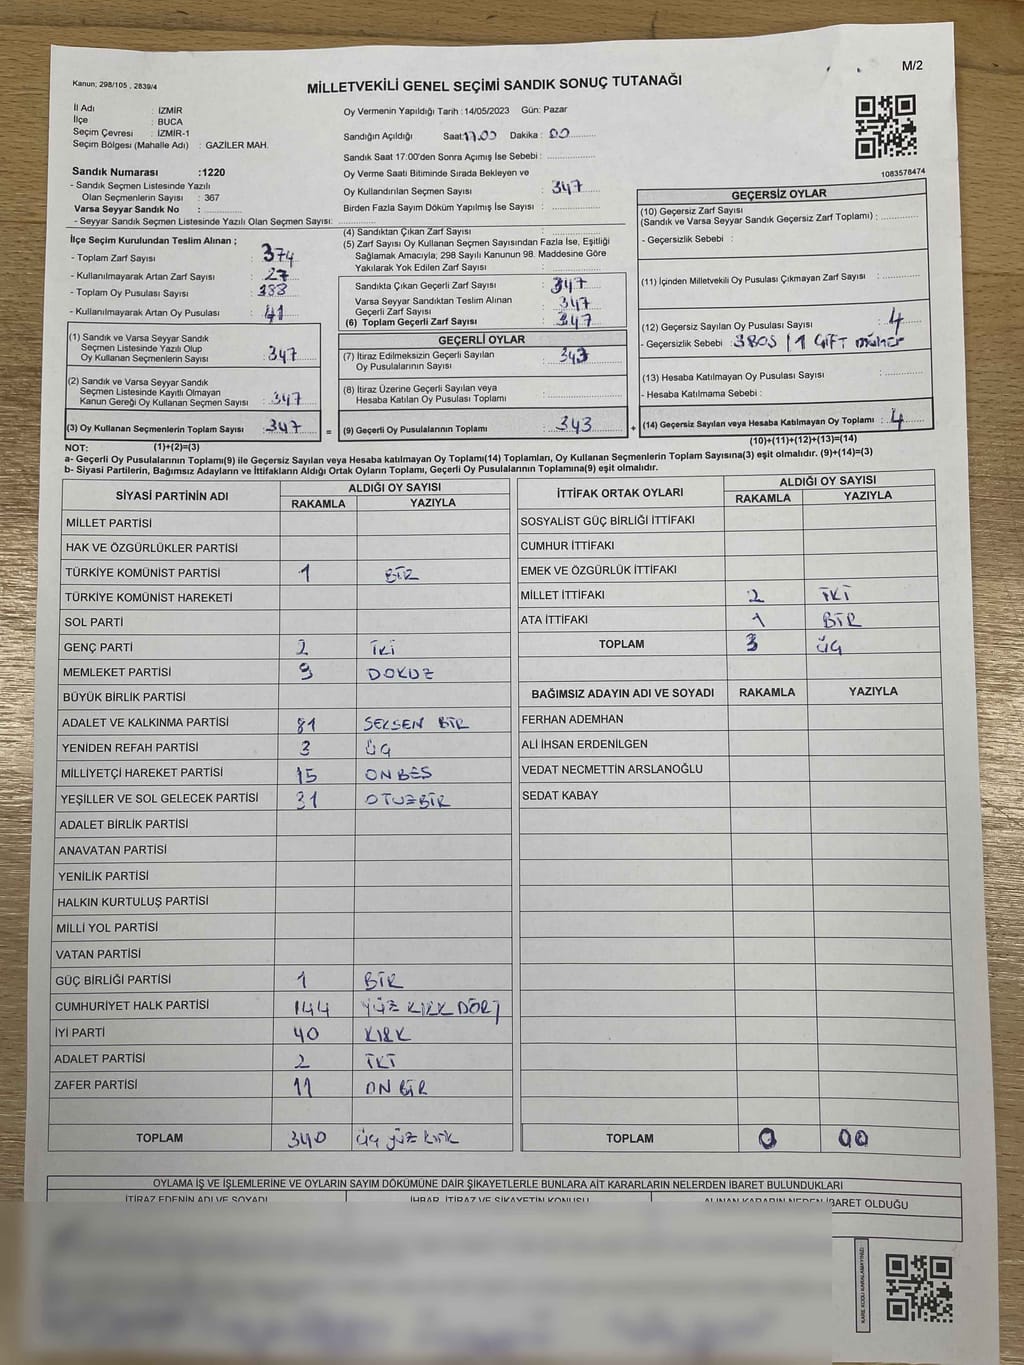 M/2
Kanun; 298/105 , 2839/4
MİLLETVEKİLİ GENEL SEÇİMİ SANDIK SONUÇ TUTANAĞI
İl Adı : İZMİR
İlçe : BUCA
Seçim Çevresi : İZMİR-1
Seçim Bölgesi (Mahalle Adı) : GAZİLER MAH.
Oy Vermenin Yapıldığı Tarih :14/05/2023 Gün: Pazar
Sandığın Açıldığı Saat:17.00 Dakika : 00
Sandık Saat 17:00'den Sonra Açımış İse Sebebi :
Oy Verme Saati Bitiminde Sırada Bekleyen ve
Oy Kullandırılan Seçmen Sayısı : 347
Birden Fazla Sayım Döküm Yapılmış İse Sayısı :
1083578474
Sandık Numarası :1220
- Sandık Seçmen Listesinde Yazılı
Olan Seçmenlerin Sayısı : 367
Varsa Seyyar Sandık No :
- Seyyar Sandık Seçmen Listesinde Yazılı Olan Seçmen Sayısı:
İlçe Seçim Kurulundan Teslim Alınan ;
- Toplam Zarf Sayısı : 374
- Kullanılmayarak Artan Zarf Sayısı : 27
- Toplam Oy Pusulası Sayısı : 388
- Kullanılmayarak Artan Oy Pusulası : 41
(1) Sandık ve Varsa Seyyar Sandık
Seçmen Listesinde Yazılı Olup
Oy Kullanan Seçmenlerin Sayısı : 347
(2) Sandık ve Varsa Seyyar Sandık
Seçmen Listesinde Kayıtlı Olmayan
Kanun Gereği Oy Kullanan Seçmen Sayısı : 347
(3) Oy Kullanan Seçmenlerin Toplam Sayısı : 347
(4) Sandıktan Çıkan Zarf Sayısı :
(5) Zarf Sayısı Oy Kullanan Seçmen Sayısından Fazla İse, Eşitliği
Sağlamak Amacıyla; 298 Sayılı Kanunun 98. Maddesine Göre
Yakılarak Yok Edilen Zarf Sayısı :
Sandıkta Çıkan Geçerli Zarf Sayısı : 347
Varsa Seyyar Sandıktan Teslim Alınan
Geçerli Zarf Sayısı : 347
(6) Toplam Geçerli Zarf Sayısı : 347
GEÇERLİ OYLAR
(7) İtiraz Edilmeksizin Geçerli Sayılan
Oy Pusulalarının Sayısı : 343
(8) İtiraz Üzerine Geçerli Sayılan veya
Hesaba Katılan Oy Pusulası Toplamı :
= (9) Geçerli Oy Pusulalarının Toplamı : 343
GEÇERSİZ OYLAR
(10) Geçersiz Zarf Sayısı
(Sandık ve Varsa Seyyar Sandık Geçersiz Zarf Toplamı) :
- Geçersizlik Sebebi :
(11) İçinden Milletvekili Oy Pusulası Çıkmayan Zarf Sayısı :
(12) Geçersiz Sayılan Oy Pusulası Sayısı : 4
- Geçersizlik Sebebi : 3BOŞ / 1 ÇİFT mühür
(13) Hesaba Katılmayan Oy Pusulası Sayısı :
- Hesaba Katılmama Sebebi :
+ (14) Geçersiz Sayılan veya Hesaba Katılmayan Oy Toplamı : 4
NOT: (1)+(2)=(3)
(10)+(11)+(12)+(13)=(14)
a- Geçerli Oy Pusulalarının Toplamı(9) ile Geçersiz Sayılan veya Hesaba katılmayan Oy Toplamı(14) Toplamları, Oy Kullanan Seçmenlerin Toplam Sayısına(3) eşit olmalıdır. (9)+(14)=(3)
b- Siyasi Partilerin, Bağımsız Adayların ve İttifakların Aldığı Ortak Oyların Toplamı, Geçerli Oy Pusulalarının Toplamına(9) eşit olmalıdır.
SİYASİ PARTİNİN ADI ALDIĞI OY SAYISI
RAKAMLA YAZIYLA
MİLLET PARTİSİ
HAK VE ÖZGÜRLÜKLER PARTİSİ
TÜRKİYE KOMÜNİST PARTİSİ 1 BİR
TÜRKİYE KOMÜNİST HAREKETİ
SOL PARTİ
GENÇ PARTİ 2 İKİ
MEMLEKET PARTİSİ 9 DOKUZ
BÜYÜK BİRLİK PARTİSİ
ADALET VE KALKINMA PARTİSİ 81 SEKSEN BİR
YENİDEN REFAH PARTİSİ 3 ÜÇ
MİLLİYETÇİ HAREKET PARTİSİ 15 ONBEŞ
YEŞİLLER VE SOL GELECEK PARTİSİ 31 OTUZBİR
ADALET BİRLİK PARTİSİ
ANAVATAN PARTİSİ
YENİLİK PARTİSİ
HALKIN KURTULUŞ PARTİSİ
MİLLİ YOL PARTİSİ
VATAN PARTİSİ
GÜÇ BİRLİĞİ PARTİSİ 1 BİR
CUMHURİYET HALK PARTİSİ 144 YÜZ KIRK DÖRT
İYİ PARTİ 40 KIRK
ADALET PARTİSİ 2 İKİ
ZAFER PARTİSİ 11 ON BİR
TOPLAM 340 üç yüz kırk
İTTİFAK ORTAK OYLARI ALDIĞI OY SAYISI
RAKAMLA YAZIYLA
SOSYALİST GÜÇ BİRLİĞİ İTTİFAKI
CUMHUR İTTİFAKI
EMEK VE ÖZGÜRLÜK İTTİFAKI
MİLLET İTTİFAKI 2 İKİ
ATA İTTİFAKI 1 BİR
TOPLAM 3 üç
BAĞIMSIZ ADAYIN ADI VE SOYADI RAKAMLA YAZIYLA
FERHAN ADEMHAN
ALİ İHSAN ERDENİLGEN
VEDAT NECMETTİN ARSLANOĞLU
SEDAT KABAY
TOPLAM 0 00
OYLAMA İŞ VE İŞLEMLERİNE VE OYLARIN SAYIM DÖKÜMÜNE DAİR ŞİKAYETLERLE BUNLARA AİT KARARLARIN NELERDEN İBARET BULUNDUKLARI
İTİRAZ EDENİN ADI VE SOYADI İHBAR, İTİRAZ VE ŞİKAYETİN KONUSU ALINAN KARARIN NEDEN İBARET OLDUĞU
KARE KODU KARALAMAYINIZ!